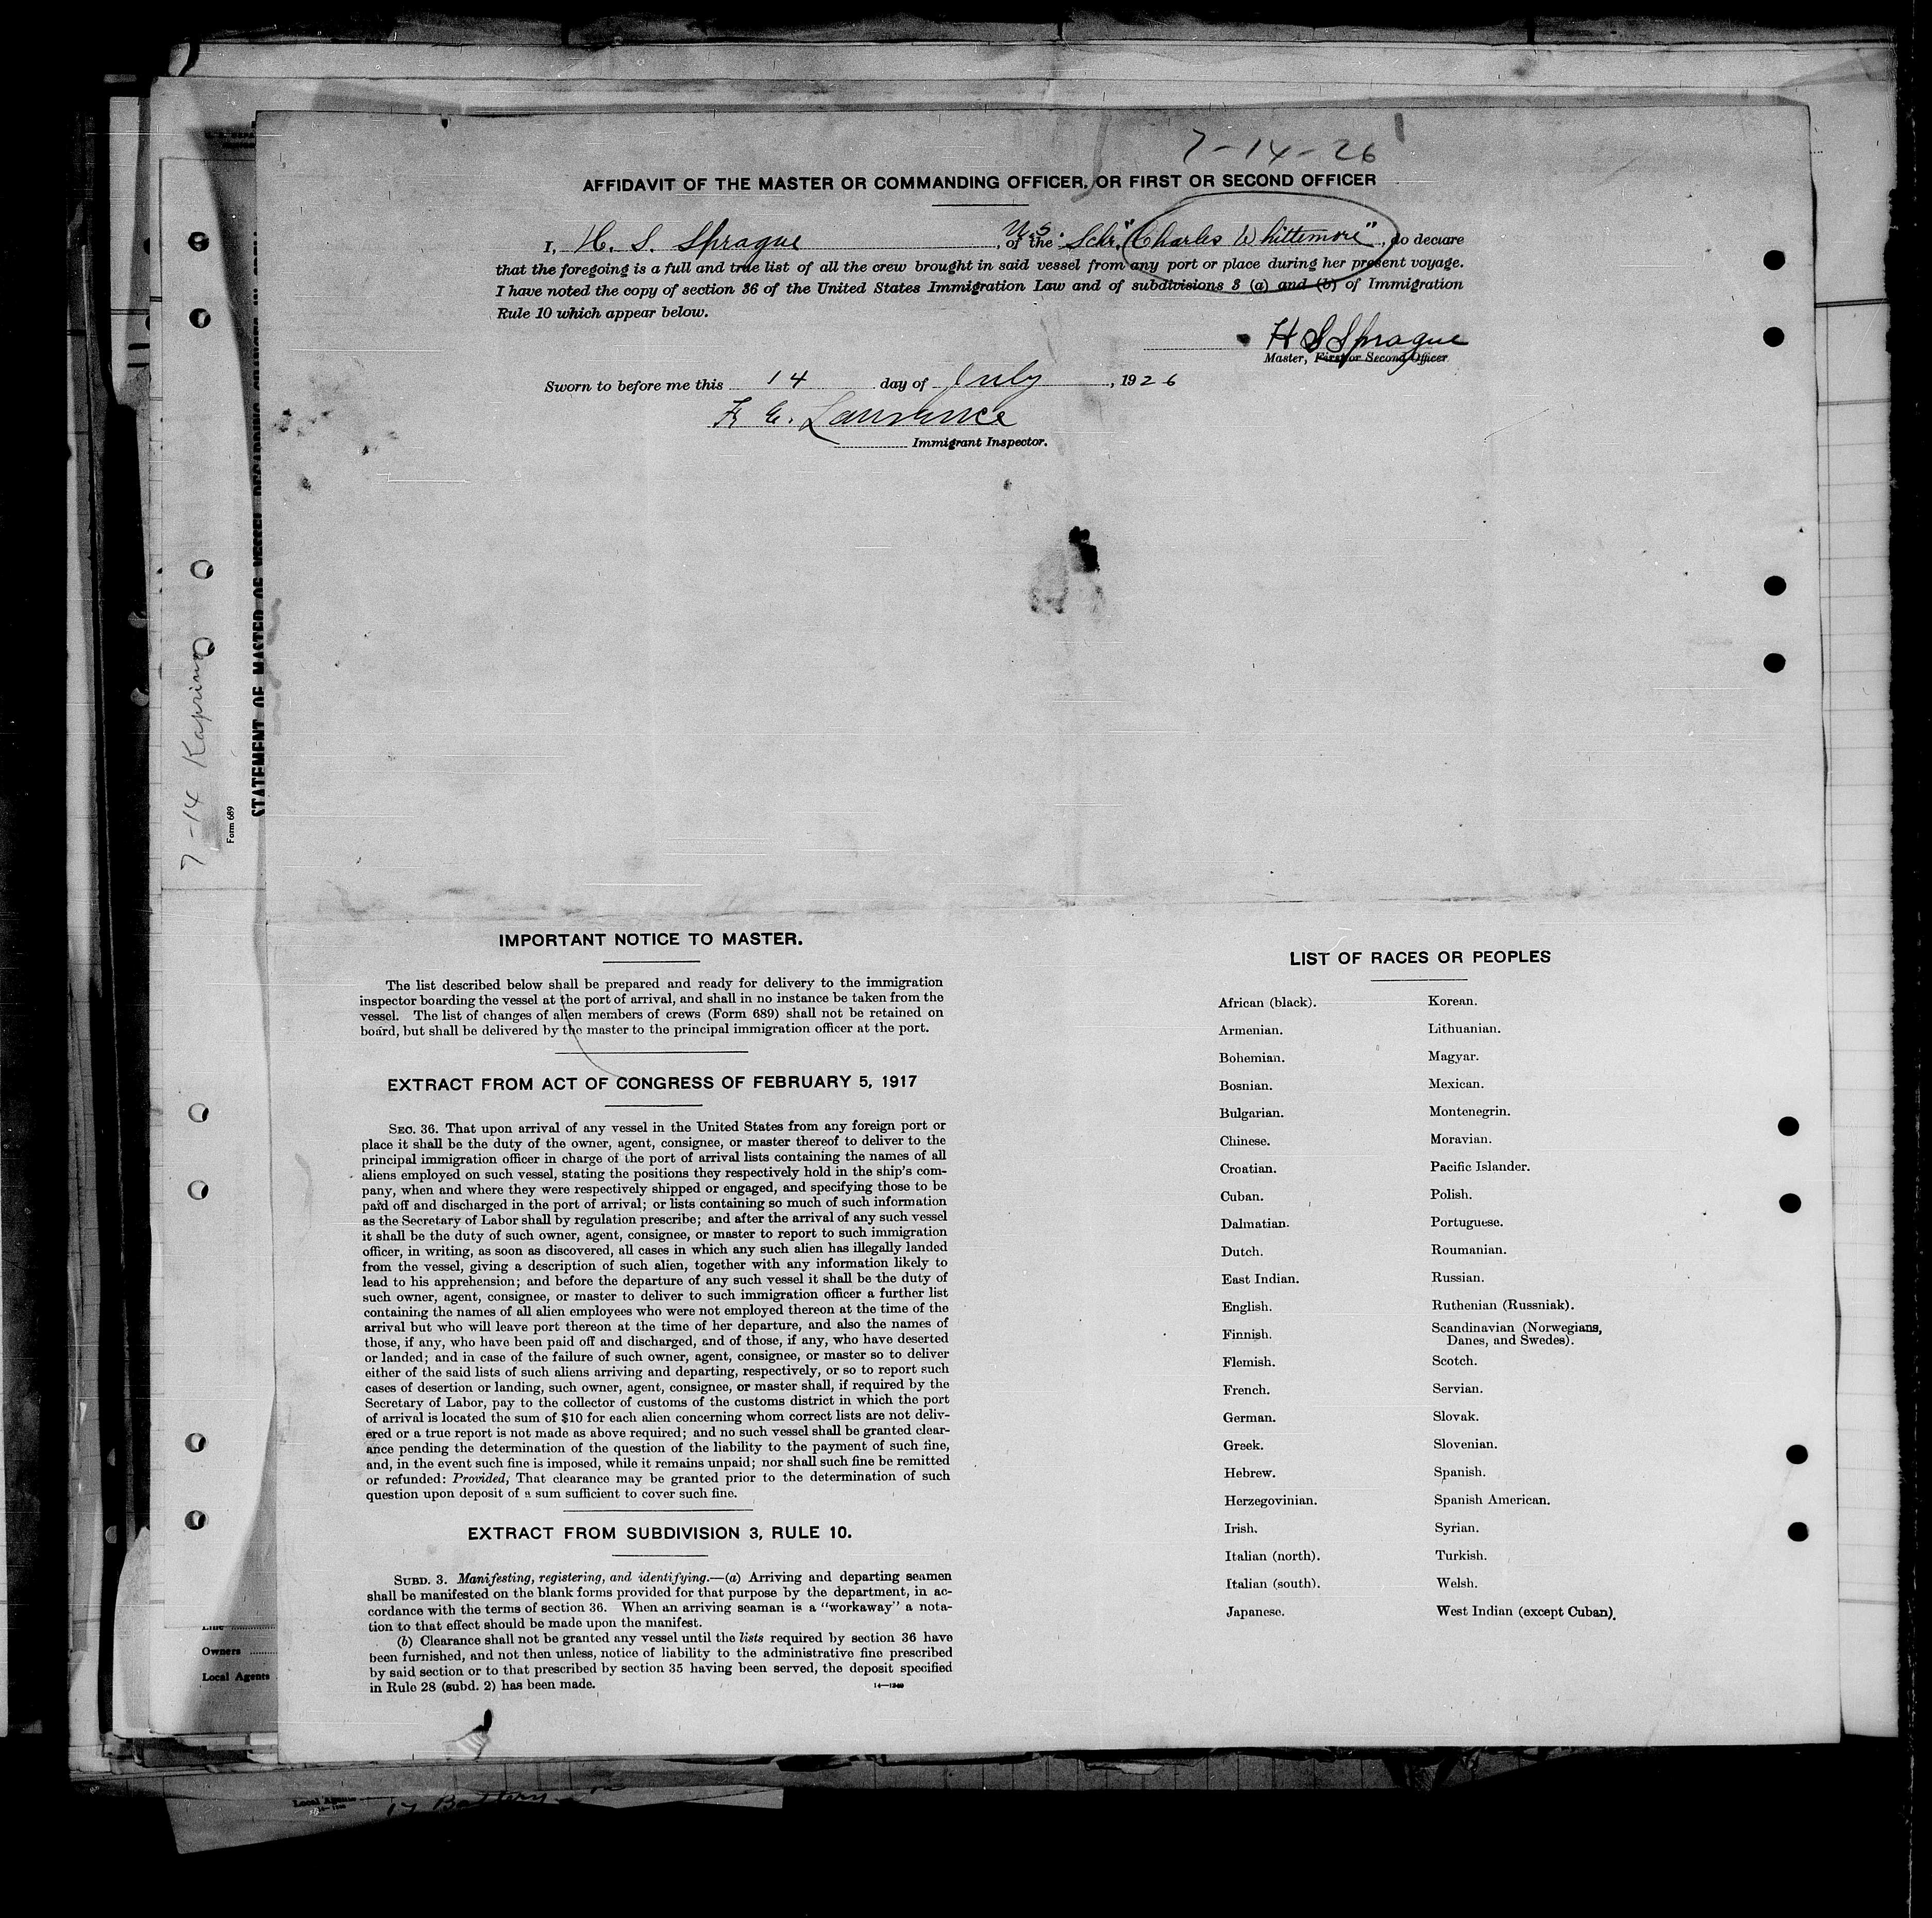 7-14-26
AFFIDAVIT OF THE MASTER OR COMMANDING OFFICER, OR FIRST OR SECOND OFFICER
I, H. S. Sprague, of the U.S. Schr. "Charles Whittemore", do declare
that the foregoing is a full and true list of all the crew brought in said vessel from any port or place during her present voyage.
I have noted the copy of section 36 of the United States Immigration Law and of subdivisions 3 (a) and (b) of Immigration
Rule 10 which appear below.
H S Sprague
Master, First or Second Officer
Sworn to before me this 14 day of July, 1926
F. E. Lawrence
Immigrant Inspector.
7-14
Form 689
STATEMENT OF MASTER OF VESSEL REGARDING CHANGES IN CREW
IMPORTANT NOTICE TO MASTER.
The list described below shall be prepared and ready for delivery to the immigration
inspector boarding the vessel at the port of arrival, and shall in no instance be taken from the
vessel. The list of changes of alien members of crews (Form 689) shall not be retained on
board, but shall be delivered by the master to the principal immigration officer at the port.
EXTRACT FROM ACT OF CONGRESS OF FEBRUARY 5, 1917
SEC. 36. That upon arrival of any vessel in the United States from any foreign port or
place it shall be the duty of the owner, agent, consignee, or master thereof to deliver to the
principal immigration officer in charge of the port of arrival lists containing the names of all
aliens employed on such vessel, stating the positions they respectively hold in the ship's com-
pany, when and where they were respectively shipped or engaged, and specifying those to be
paid off and discharged in the port of arrival; or lists containing so much of such information
as the Secretary of Labor shall by regulation prescribe; and after the arrival of any such vessel
it shall be the duty of such owner, agent, consignee, or master to report to such immigration
officer, in writing, as soon as discovered, all cases in which any such alien has illegally landed
from the vessel, giving a description of such alien, together with any information likely to
lead to his apprehension; and before the departure of any such vessel it shall be the duty of
such owner, agent, consignee, or master to deliver to such immigration officer a further list
containing the names of all alien employees who were not employed thereon at the time of the
arrival but who will leave port thereon at the time of her departure, and also the names of
those, if any, who have been paid off and discharged, and of those, if any, who have deserted
or landed; and in case of the failure of such owner, agent, consignee, or master so to deliver
either of the said lists of such aliens arriving and departing, respectively, or so to report such
cases of desertion or landing, such owner, agent, consignee, or master shall, if required by the
Secretary of Labor, pay to the collector of customs of the customs district in which the port
of arrival is located the sum of $10 for each alien concerning whom correct lists are not deliv-
ered or a true report is not made as above required; and no such vessel shall be granted clear-
ance pending the determination of the question of the liability to the payment of such fine,
and, in the event such fine is imposed, while it remains unpaid; nor shall such fine be remitted
or refunded: Provided, That clearance may be granted prior to the determination of such
question upon deposit of a sum sufficient to cover such fine.
EXTRACT FROM SUBDIVISION 3, RULE 10.
SUBD. 3. Manifesting, registering, and identifying.—(a) Arriving and departing seamen
shall be manifested on the blank forms provided for that purpose by the department, in ac-
cordance with the terms of section 36. When an arriving seaman is a "workaway" a nota-
tion to that effect should be made upon the manifest.
(b) Clearance shall not be granted any vessel until the lists required by section 36 have
been furnished, and not then unless, notice of liability to the administrative fine prescribed
by said section or to that prescribed by section 35 having been served, the deposit specified
in Rule 28 (subd. 2) has been made.
LIST OF RACES OR PEOPLES
African (black).
Armenian.
Bohemian.
Bosnian.
Bulgarian.
Chinese.
Croatian.
Cuban.
Dalmatian.
Dutch.
East Indian.
English.
Finnish.
Flemish.
French.
German.
Greek.
Hebrew.
Herzegovinian.
Irish.
Italian (north).
Italian (south).
Japanese.
Korean.
Lithuanian.
Magyar.
Mexican.
Montenegrin.
Moravian.
Pacific Islander.
Polish.
Portuguese.
Roumanian.
Russian.
Ruthenian (Russniak).
Scandinavian (Norwegians,
Danes, and Swedes).
Scotch.
Servian.
Slovak.
Slovenian.
Spanish.
Spanish American.
Syrian.
Turkish.
Welsh.
West Indian (except Cuban).
Line
Owners
Local Agents
Local Agents
17 Battery